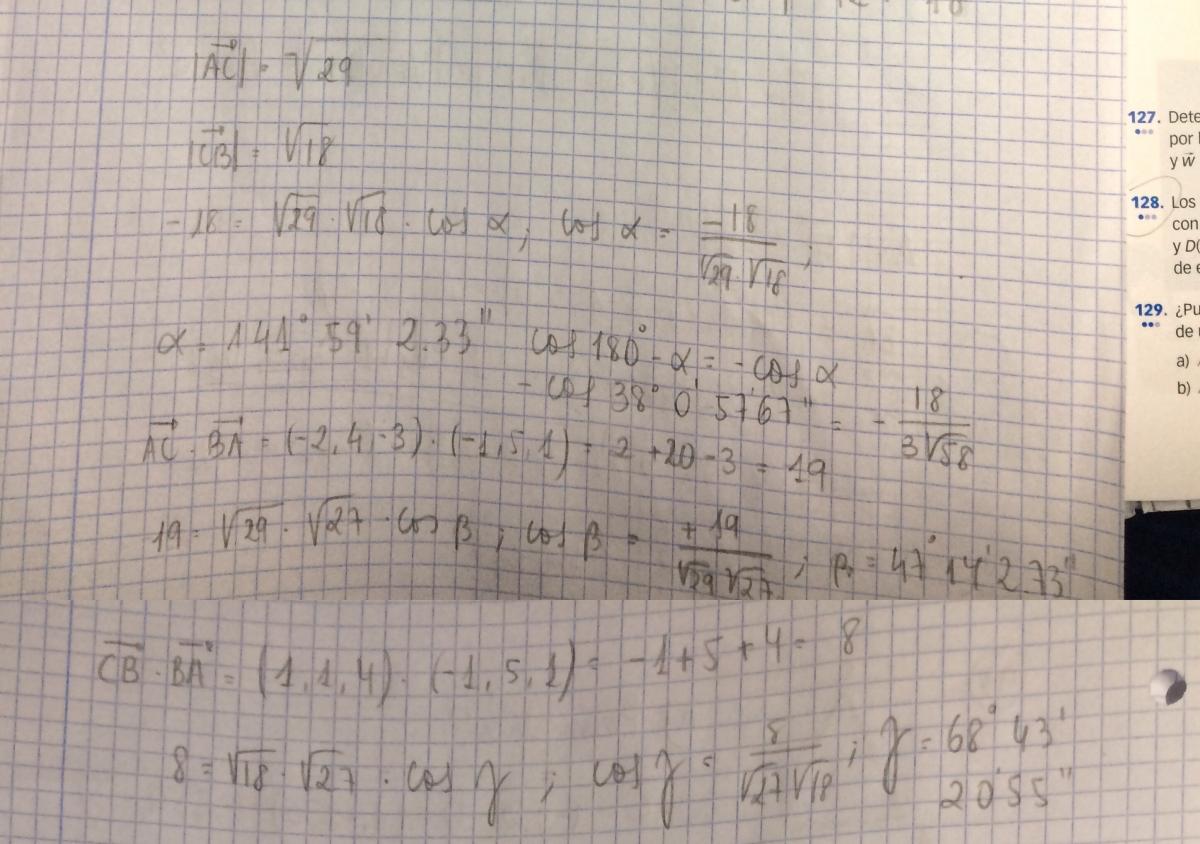 |AC| = √29
|CB| = √18
-18 = √29 · √18 · cos α ; cos α = -18 / √29 · √18 ;
α = 141° 59' 2.33" cos 180° - α = - cos α
- cos 38° 0' 57'67" = - 18 / 3√58
AC · BA = (-2, 4, -3) · (-1, 5, 1) = 2 + 20 - 3 = 19
19 = √29 · √27 · cos β ; cos β = +19 / √29 √27 ; β = 47° 14' 2.73"
CB · BA = (1, 1, 4) · (-1, 5, 1) = -1 + 5 + 4 = 8
8 = √18 · √27 · cos γ ; cos γ = 8 / √27 √18 ; γ = 68° 43'
20'55"
127. Dete
por l
y w
128. Los
con
y D(
de e
129. ¿Pu
de u
a)
b)